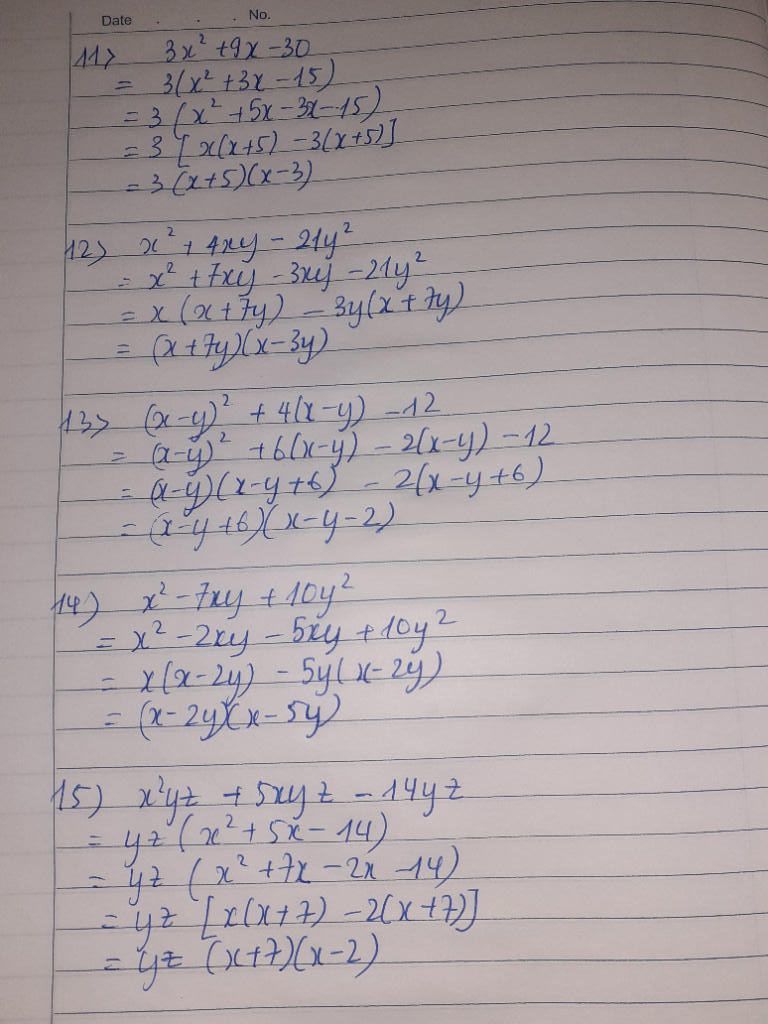 Date . . . No.
11> 3x² + 9x - 30
= 3(x² + 3x - 15)
= 3 (x² + 5x - 3x - 15)
= 3 [x(x+5) - 3(x+5)]
= 3 (x+5)(x-3)
12> x² + 4xy - 21y²
= x² + 7xy - 3xy - 21y²
= x (x + 7y) - 3y(x + 7y)
= (x+7y)(x-3y)
13> (x-y)² + 4(x-y) - 12
= (x-y)² + 6(x-y) - 2(x-y) - 12
= (x-y)(x-y+6) - 2(x-y+6)
= (x-y+6)(x-y-2)
14) x² - 7xy + 10y²
= x² - 2xy - 5xy + 10y²
= x(x-2y) - 5y(x-2y)
= (x-2y)(x-5y)
15) x²yz + 5xyz - 14yz
= yz (x² + 5x - 14)
= yz (x² + 7x - 2x - 14)
= yz [x(x+7) - 2(x+7)]
= yz (x+7)(x-2)